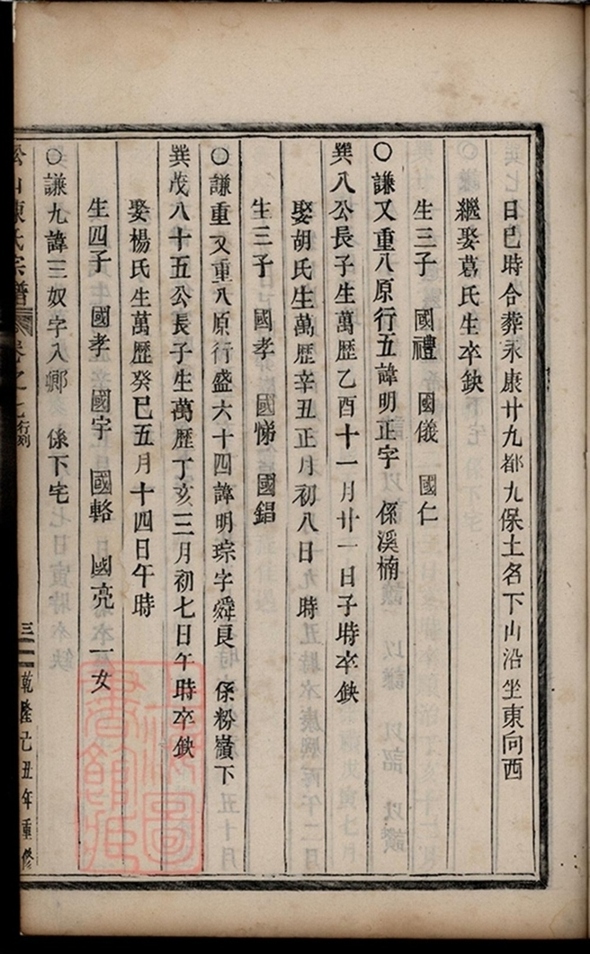 日巳時合葬永康廿九都九保土名下山沿坐東向西
繼娶葛氏生卒缺
生三子 國禮 國儀 國仁
〇謙又重八原行五諱明正字 係溪楠
巽八公長子生萬歷乙酉十一月廿一日子時卒缺
娶胡氏生萬歷辛丑正月初八日 時
生三子 國孝 國悌 國錩
〇謙重又重八原行盛六十四諱明琮字舜良 係粉嶺下
巽茂八十五公長子生萬歷丁亥三月初七日午時卒缺
娶楊氏生萬歷癸巳五月十四日午時
生四子 國孝 國宇 國輅 國亮 一女
〇謙九諱三奴字入鄉 係下宅
陳氏宗譜 卷之七行列 三 乾隆己丑年重修